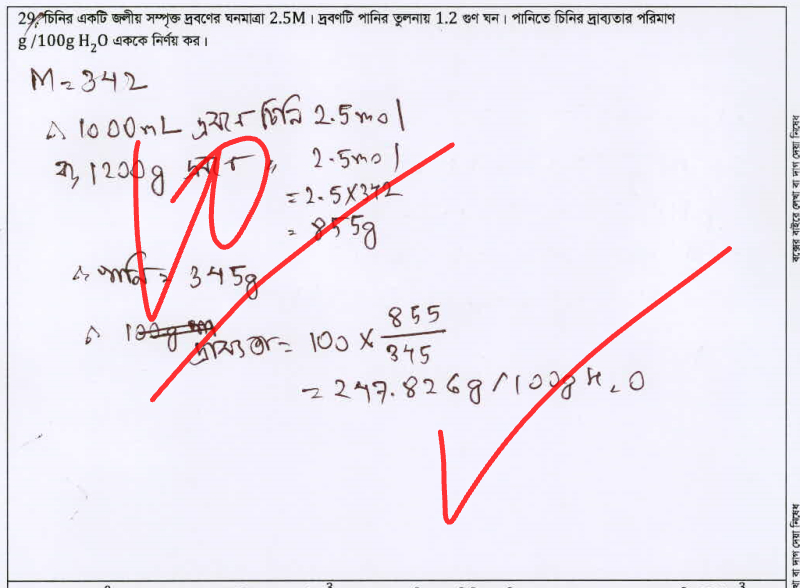 29. চিনির একটি জলীয় সম্পৃক্ত দ্রবণের ঘনমাত্রা 2.5M। দ্রবণটি পানির তুলনায় 1.2 গুণ ঘন। পানিতে চিনির দ্রাব্যতার পরিমাণ
g /100g H₂O এককে নির্ণয় কর।
M = 342
∴ 1000mL দ্রবণে চিনি 2.5mol
বা, 1200g দ্রবণে " 2.5mol
= 2.5×342
= 855g
∴ পানি = 345g
∴ দ্রাব্যতা = 100 × 855/345
= 247.826g/100g H₂O
বক্সের বাইরে লেখা বা দাগ দেয়া নিষেধ
বা দাগ দেয়া নিষেধ